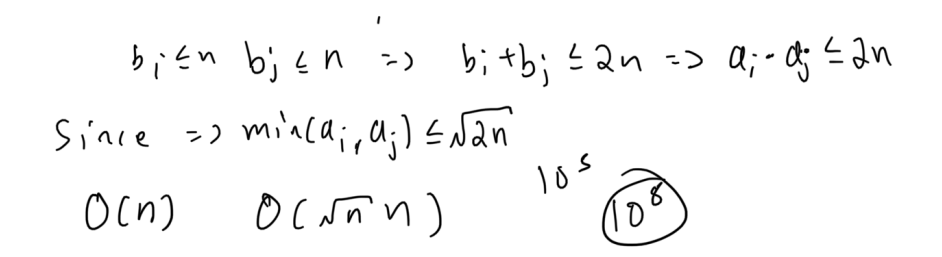 bᵢ ≤ n bⱼ ≤ n => bᵢ + bⱼ ≤ 2n => aᵢ · aⱼ ≤ 2n
Since => min(aᵢ, aⱼ) ≤ √2n
O(n) O(√n n) 10⁵ 10⁸